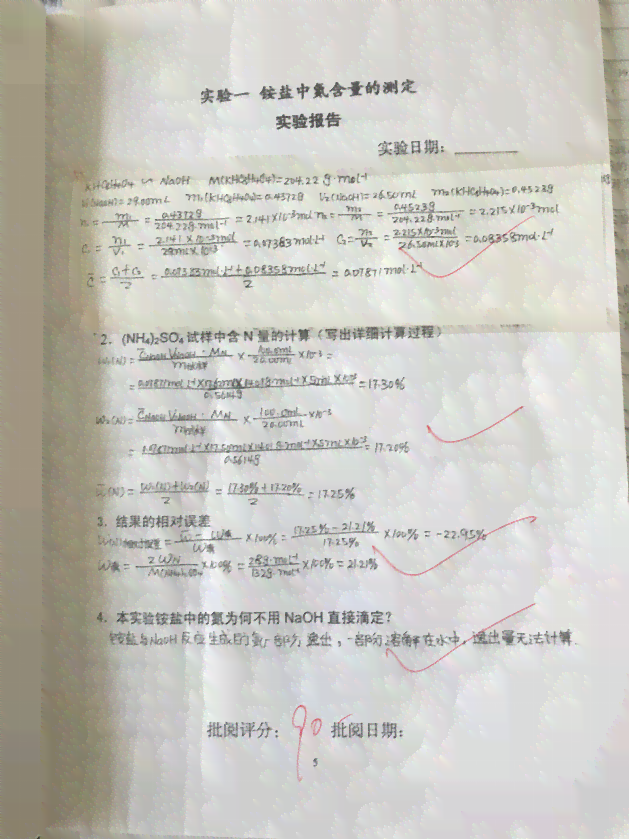 实验一 铵盐中氮含量的测定
实验报告
实验日期：
KHC8H4O4 ~ NaOH M(KHC8H4O4)=204.22g·mol-1
V1(NaOH)=29.00mL m1(KHC8H4O4)=0.4372g V2(NaOH)=26.50mL m2(KHC8H4O4)=0.4523g
n1=m1/M=0.4372g/204.22g·mol-1=2.141×10-3mol n2=m2/M=0.4523g/204.22g·mol-1=2.215×10-3mol
C1=n1/V1=2.141×10-3mol/29mL×10-3=0.07383mol·L-1 C2=n2/V2=2.215×10-3mol/26.50mL×10-3=0.08358mol·L-1
C̄=C1+C2/2=0.07383mol·L-1+0.08358mol·L-1/2=0.07871mol·L-1
2. (NH4)2SO4 试样中含 N 量的计算（写出详细计算过程）
W1(N)=C̄NaOH VNaOH·MN/m试样×100.0mL/20.00mL×10-3=
W2(N)=C̄NaOH VNaOH·MN/m试样×100.0mL/20.00mL×10-3
W̄(N)=W1(N)+W2(N)/2=17.30%+17.20%/2=17.25%
3. 结果的相对误差
×100%=17.25%-21.21%/17.25%×100%=-22.95%
×100%=28g·mol-1/132g·mol-1×100%=21.21%
4. 本实验铵盐中的氮为何不用 NaOH 直接滴定？
铵盐与NaOH反应生成的氨一部分逸出，一部分溶解在水中，逸出量无法计算.
批阅评分： 90 批阅日期：
5